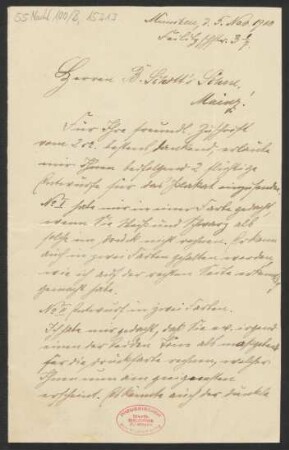 55 Nachl 100/B,
München, d. 5. Nov. 1910
Herren B. Schott's Söhne,
Mainz!
Für Ihre freundl. Zuschrift
vom 2. ds. bestens dankend, erlaube
mir Ihnen beifolgend 2 flüchtige
Entwürfe für das Plakat einzusenden
No I habe mir in einer Farbe gedacht,
wenn Sie Weiss und Schwarz als
solche im Druck nicht rechnen. Es kann
auch in zwei Farben gehalten werden,
wie ich auf der rechten Seite
gemacht habe.
No II Entwurf in zwei Farben.
Ich habe mir gedacht, daß Sie ev. irgend
einen der beiden Töne als
für die Druckfarbe rechnen, welcher
Ihnen nun am geeignetsten
erscheint. Es könnte auch der dunkle